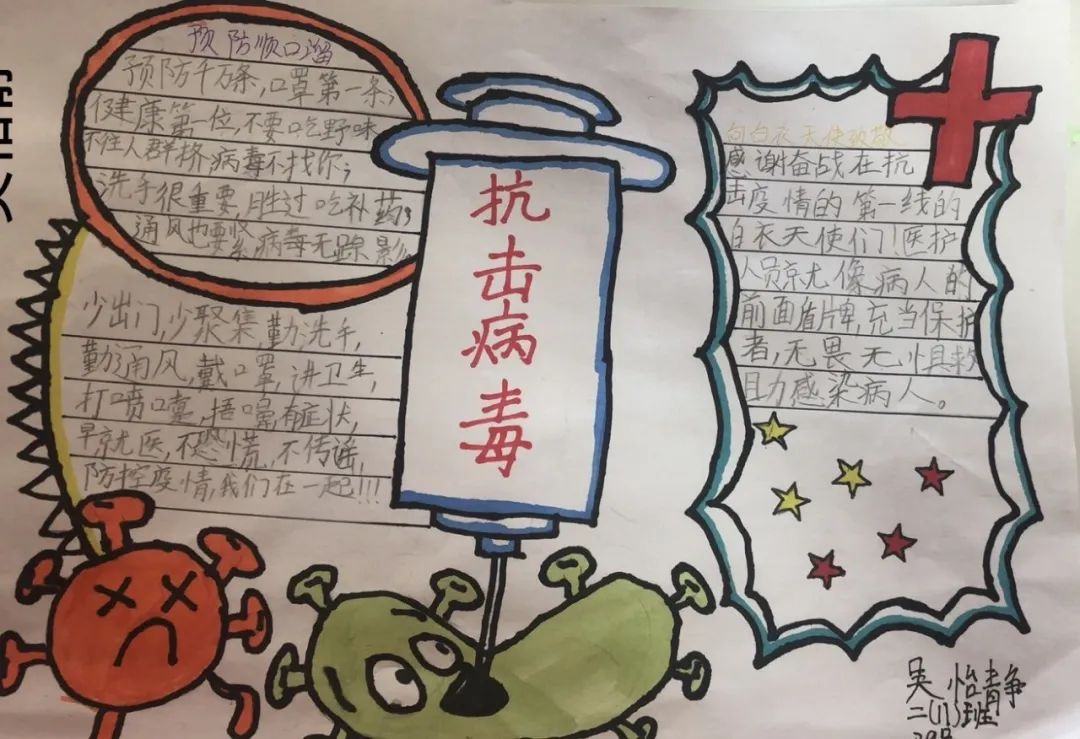 预防顺口溜
预防千万条,口罩第一条;
健康第一位,不要吃野味
不往人群挤病毒不找你;
洗手很重要,胜过吃补药;
通风也要紧病毒无踪影
少出门,少聚集,勤洗手,
勤通风,戴口罩,讲卫生,
打喷嚏,捂嘴有症状,
早就医,不恐慌,不传谣,
防控疫情,我们在一起!!!
抗
击
病
毒
向白衣天使致敬
感谢奋战在抗
击疫情的第一线的
白衣天使们!医护
人员就像病人的
前面盾牌,充当保护
者,无畏无惧救
助感染病人。
吴怡静
二(1)班